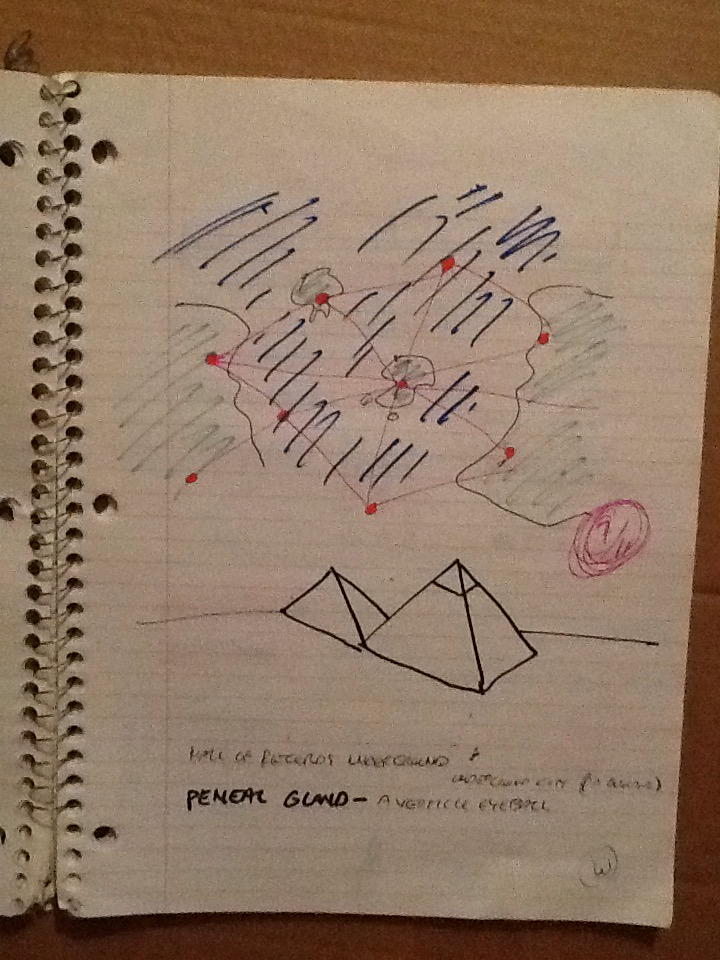 HALL OF RECORDS UNDERGROUND &
UNDERGROUND CITY
PENEAL GLAND — A VERTICLE EYEBALL